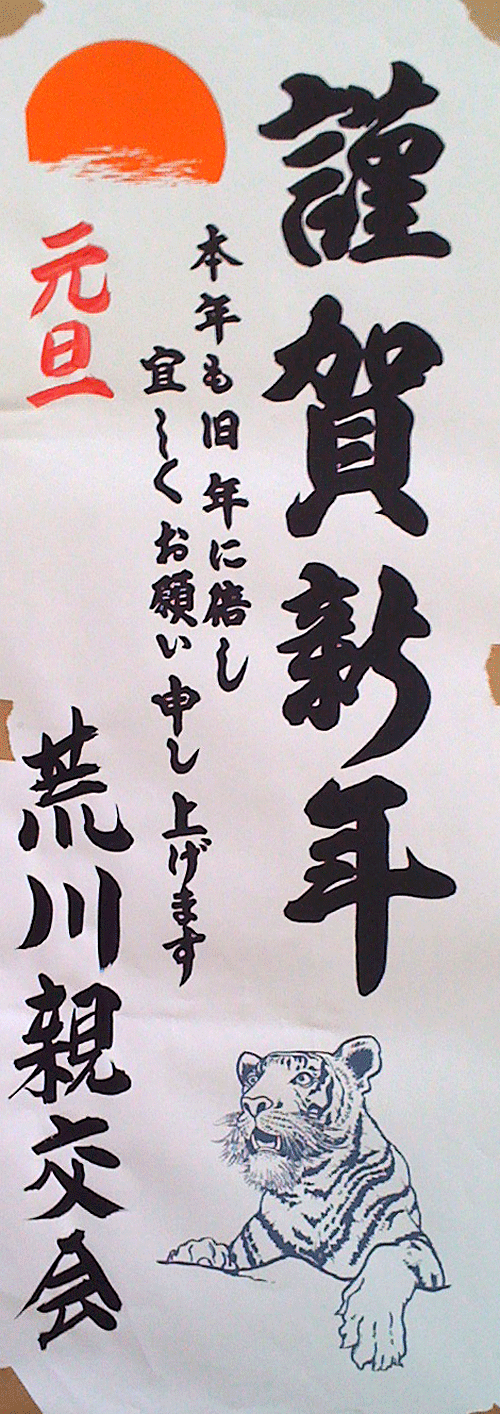 謹賀新年
本年も旧年に倍し
宜しくお願い申し上げます
元旦
荒川親交会